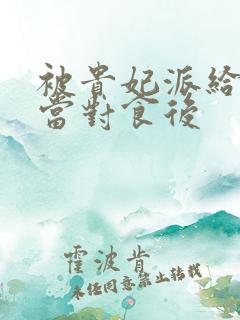 被貴妃派給
當對食後
霍波肯
未經同意禁止轉載